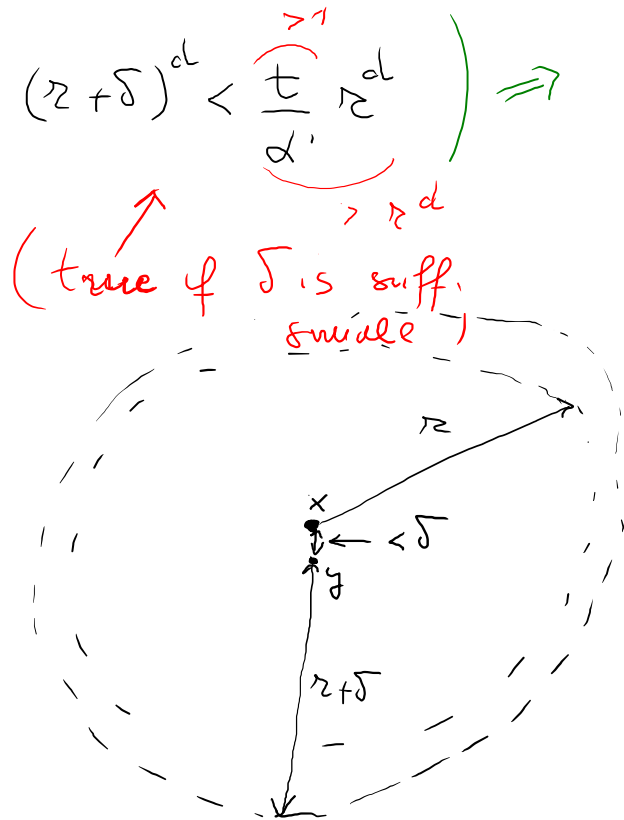 > 1
(r + δ)^d < t/α' r^d ) ⇒
> r^d
(true if δ is suff.
small)
r
x
< δ
y
r + δ